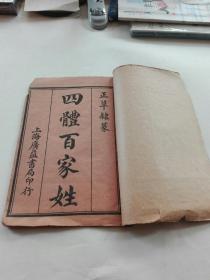 正草隸篆
四體百家姓
上海廣益書局印行